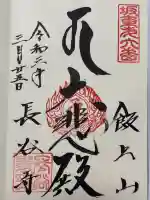 坂東第六番
飯上山
大悲殿
令和三年
三月廿五日
長谷寺